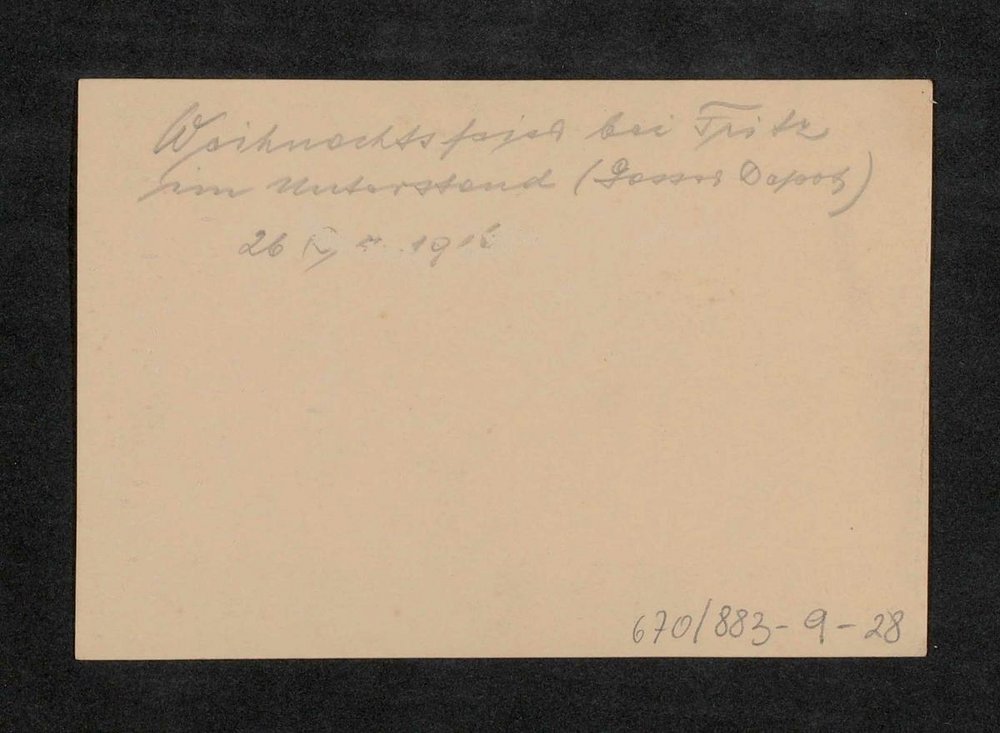 Weihnachtsfeier bei Fritz
im Unterstand (Dosses Depot)
26 1916
670/883-9-28